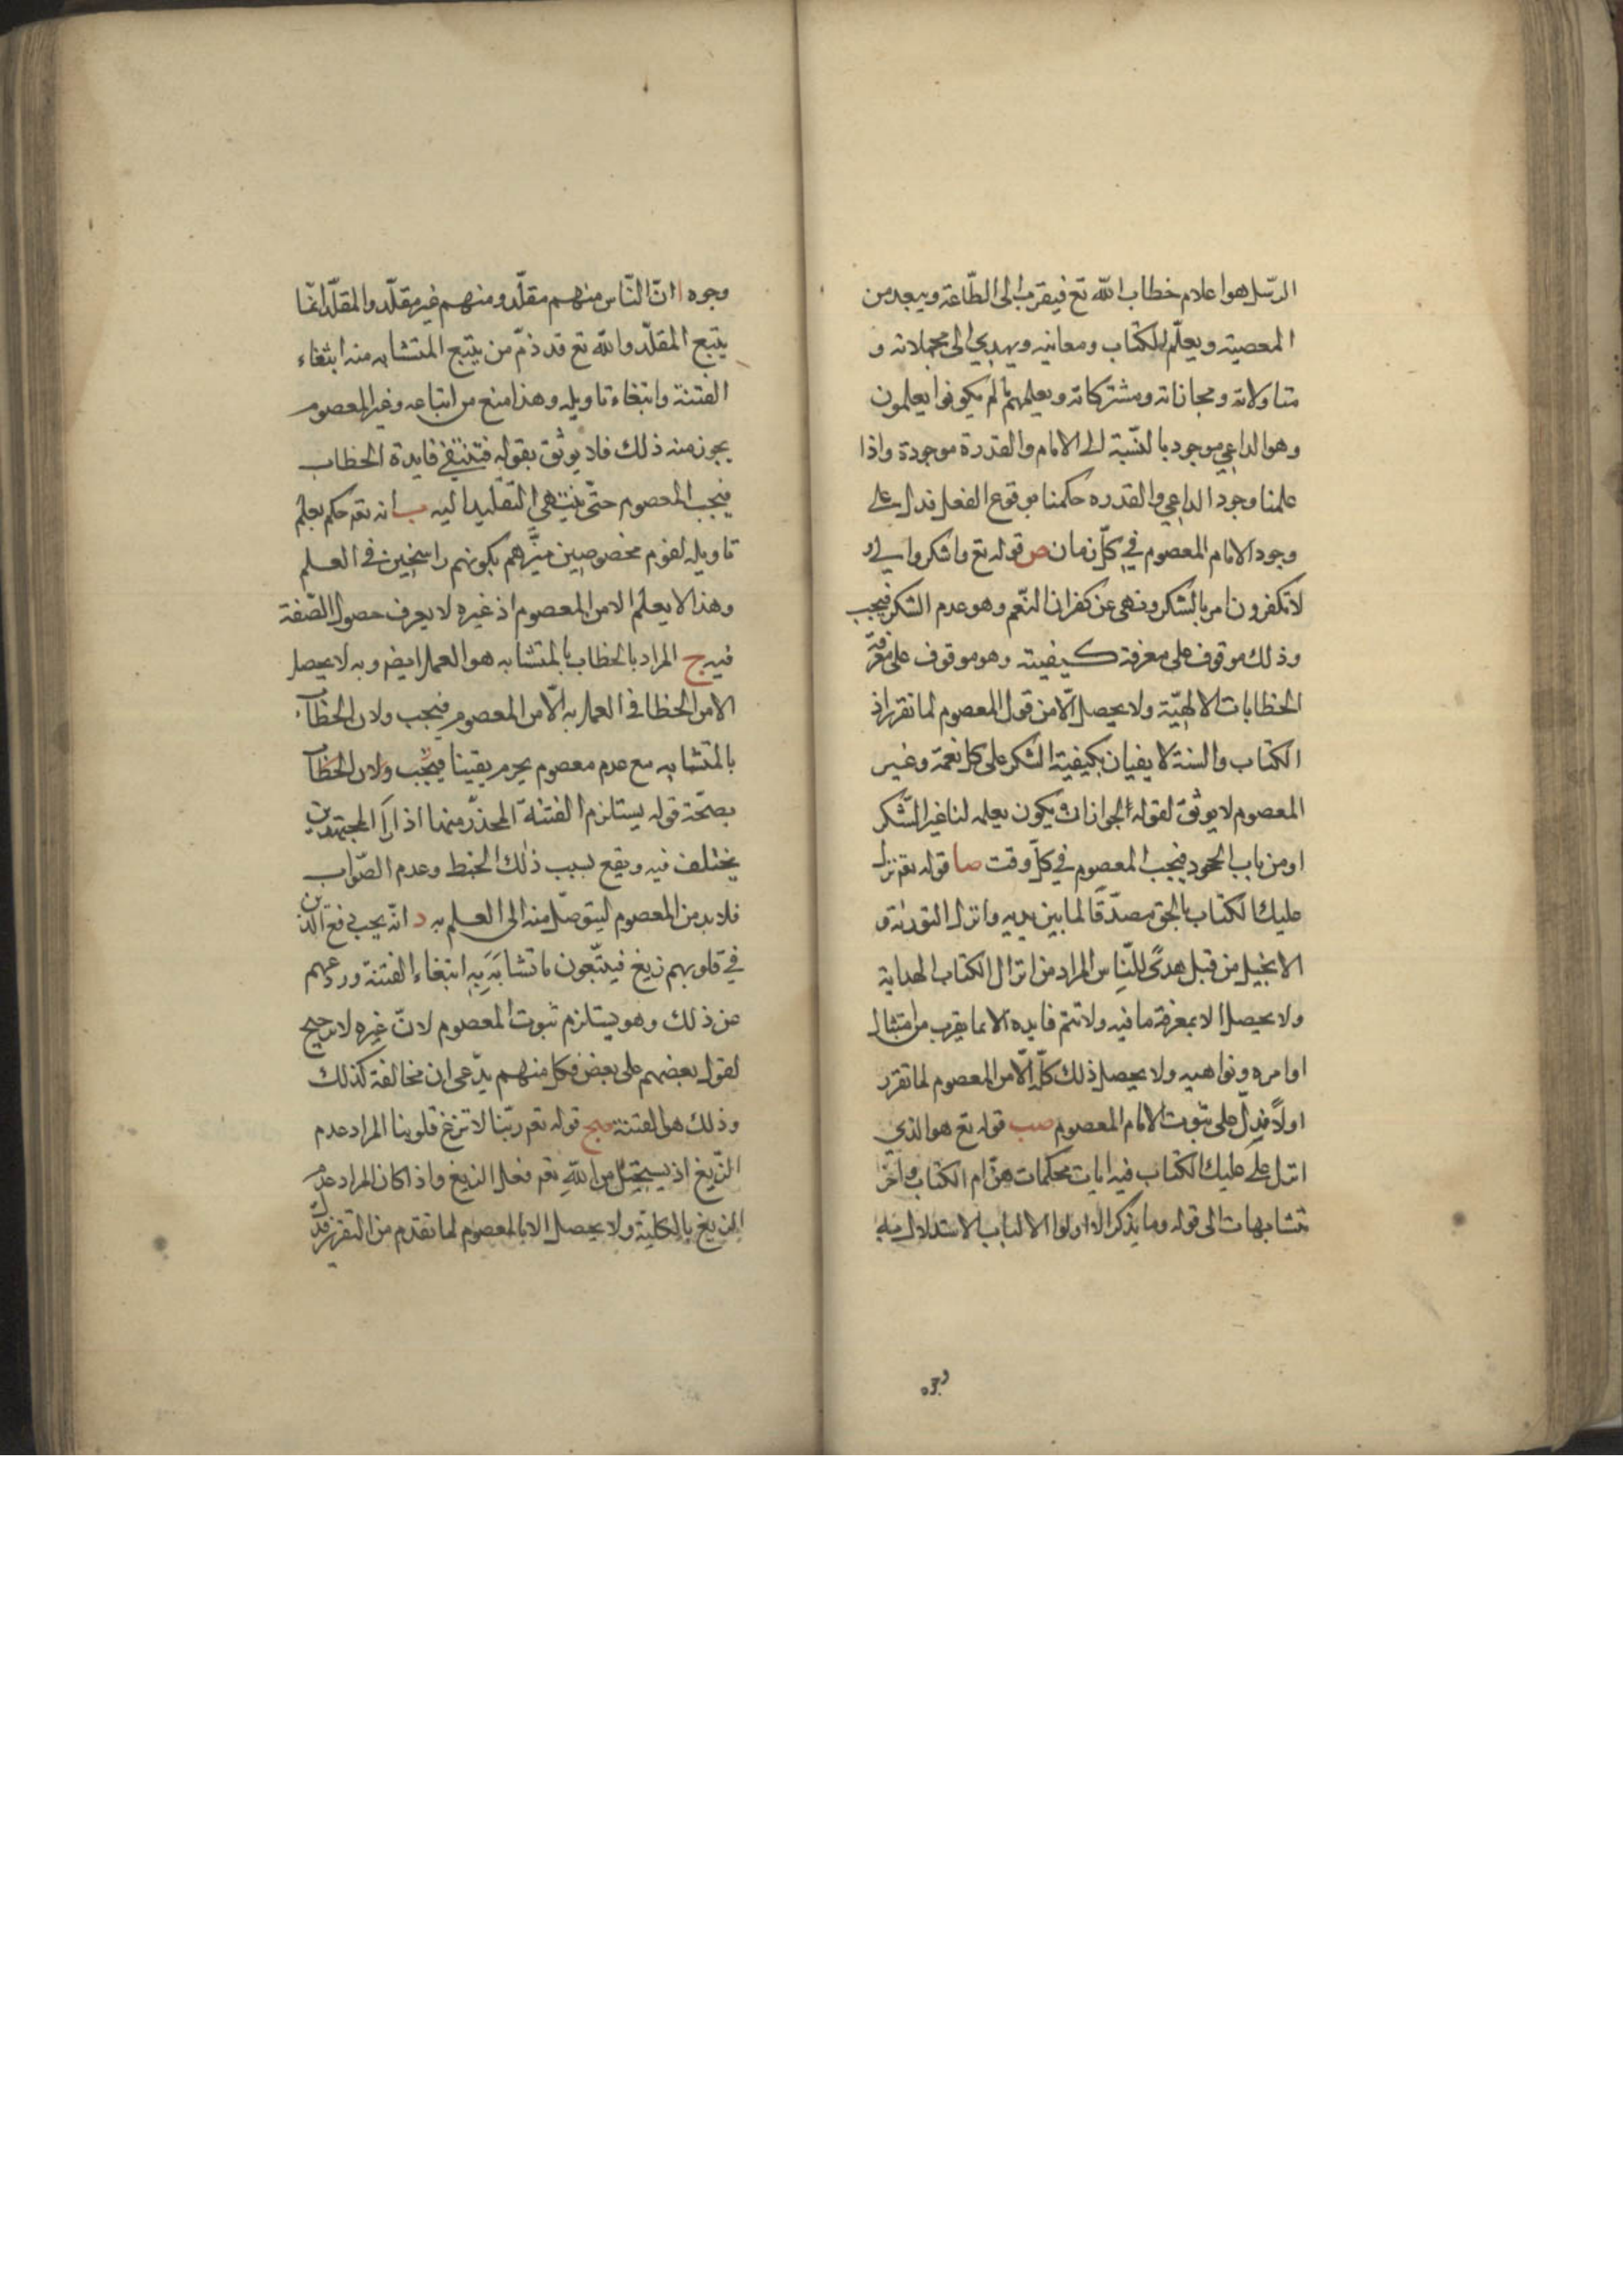 الرّسل هو اعلام خطاب الله تع فيقرب الى الطّاعة ويبعد من
المعصية ويعلّم الكتاب ومعانيه ويهدي الى مجملاته و
متاولاته ومجازاته ومشتركاته ويعلمهم ما لم يكونوا يعلمون
وهو الداعي موجود بالنّسبة الى الامام والقدرة موجودة واذا
علمنا وجود الداعي والقدره حكمنا بوقوع الفعل فدل على
وجود الامام المعصوم في كلّ زمان ص قوله تع واشكروا لي و
لا تكفرون امر بالشكر ونهى عن كفران النّعم وهو عدم الشكر فيجب
وذلك موقوف على معرفة كيفيته وهو موقوف على معرفة
الخطابات الالهيّة ولا يحصل الّا من قول المعصوم لما تقرر اذ
الكتاب والسنة لا يفيان بكيفية الشكر على كل نعمة وغير
المعصوم لا يوثق لقوله لجواز ان يكون يعلمه لنا غير الشّكر
او من باب الجحود فيجب المعصوم في كلّ وقت صا قوله تعم نزل
عليك الكتاب بالحق مصدّقًا لما بين يديه وانزل التورية و
الانجيل من قبل هدًى للنّاس المراد من انزال الكتاب الهداية
ولا يحصل الا بمعرفة ما فيه ولا تتم فايده الا بما يقرب من امتثال
اوامره ونواهيه ولا يحصل ذلك كلّه الّا من المعصوم لما تقرر
اولًا فدلّ على ثبوت الامام المعصوم صب قوله تع هو الذي
انزل على عليك الكتاب فيه ايات محكمات هنّ ام الكتاب واخر
متشابهات الى قوله وما يذكر الا اولوا الالباب الاستدلال فيه
وجوه ا انّ النّاس منهم مقلّد ومنهم غير مقلّد والمقلّد انّما
يتبع المقلّد والله تع قد ذمّ من يتبع المتشابه منه ابتغاء
الفتنة وابتغاء تاويله وهذا منع من اتباعه وغير المعصوم
يجوز منه ذلك فلا يوثق بقوله فتنتفي فايدة الخطاب
فيجب المعصوم حتّى ينتهي التّقليد اليه ب انه تعم حكم بعلم
تاويله لقوم مخصوصين ميّزهم بكونهم راسخين في العلم
وهذا لا يعلم الا من المعصوم اذ غيره لا يعرف حصول الصّفة
فيه ج المراد بالخطاب بالمتشابه هو العمل ايضم وبه لا يحصل
الامن الخطا في العمل به الّا من المعصوم فيجب ولان الخطاب
بالمتشابه مع عدم معصوم يحرم يقينا فيجب ولان الخطاب
بصحّة قوله يستلزم الفتنة المحذّر منها اذ اراء المجتهدين
يختلف فيه ويقع بسبب ذلك الخبط وعدم الصّواب
فلا بد من المعصوم ليتوصّل منه الى العلم به د انّه يجب دفع الذين
في قلوبهم زيغ فيتّبعون ما تشابه به ابتغاء الفتنة وردعهم
عن ذلك وهو يستلزم ثبوت المعصوم لانّ غيره لا ترجيح
لقول بعضهم على بعض فكل منهم يدّعى ان مخالفة كذلك
وذلك هو الفتنة صج قوله تعم ربّنا لا تزغ قلوبنا المراد عدم
الزّيغ اذ يستحيل من الله تعم فعل الزيغ واذا كان المراد عدم
الزيغ بالكليّة ولا يحصل الا بالمعصوم لما تقدم من التقرير فدل